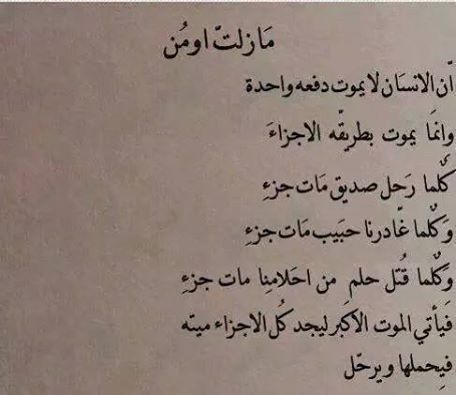 مَازلتّ اومُن
اّن الانسَان لا يموت دفعه واحدة
وانمَا يموت بطريقّه الاجزاءَ
كٌلما رَحل صديق مَات جزءِ
وَكٌلما غّادرنا حبَيب مَات جزءِ
وَكٌلما قُتل حلم من احَلامِنا مات جزءِ
فيَأتي الموت الاكَبر ليجد كُل الاجزاء ميتّه
فيِحملها ويرحّل